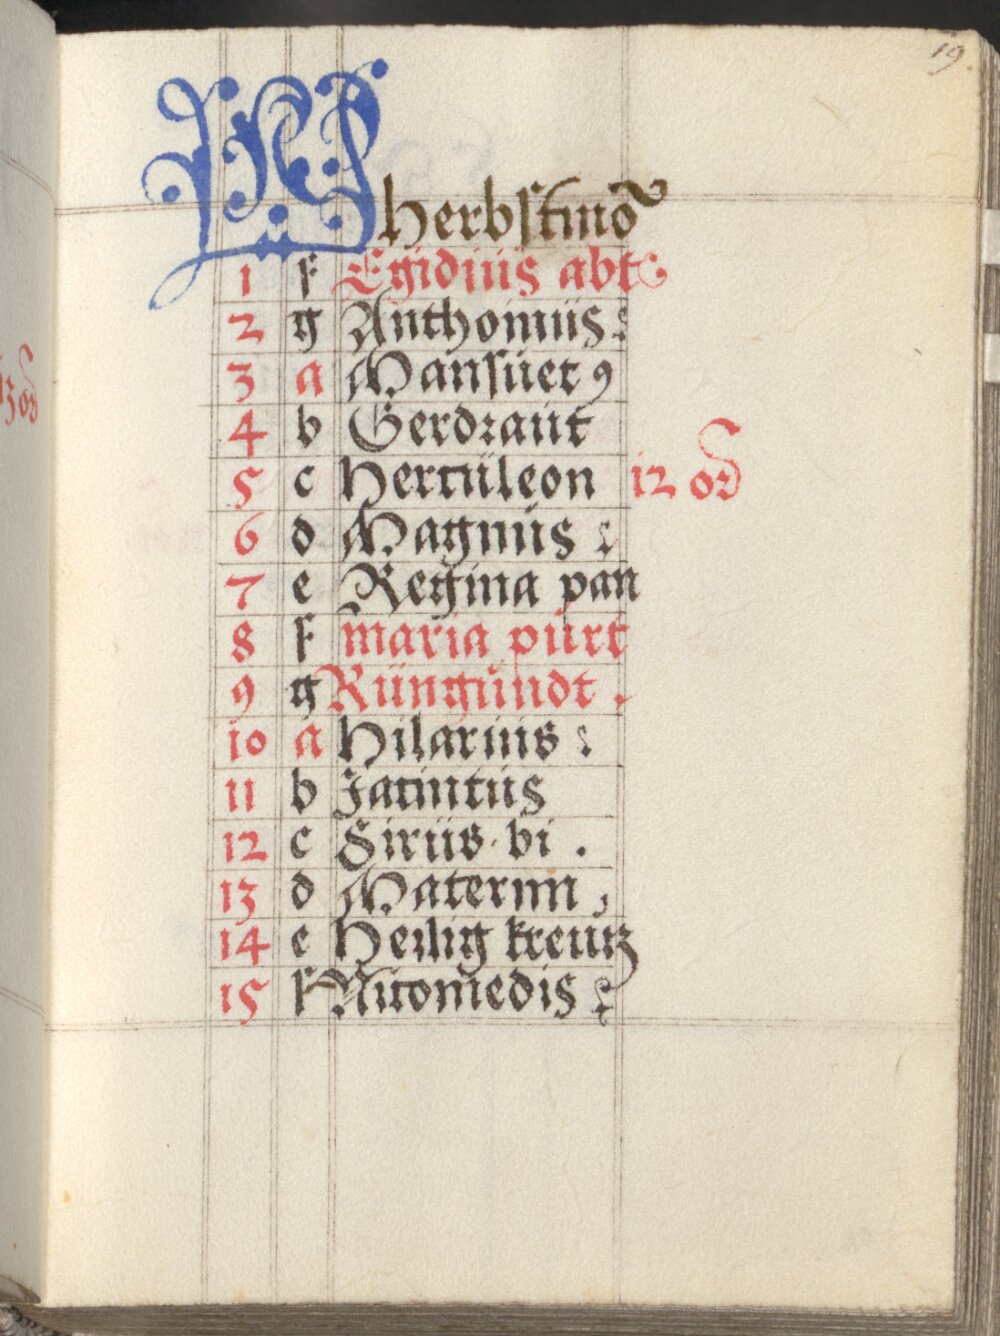 19.
Herbstmō
1 f Egidius abt
2 g Anthonius
3 a Mansuet9
4 b Gerdraut
5 c Herculeon 12 ord
6 d Magnus
7 e Regina pan
8 f maria purt
9 g Küngundt .
10 a Hilarius :
11 b Jacintus
12 c Sirus . bi .
13 d Maternn
14 e Heilig kreutz
15 f Nicomedis